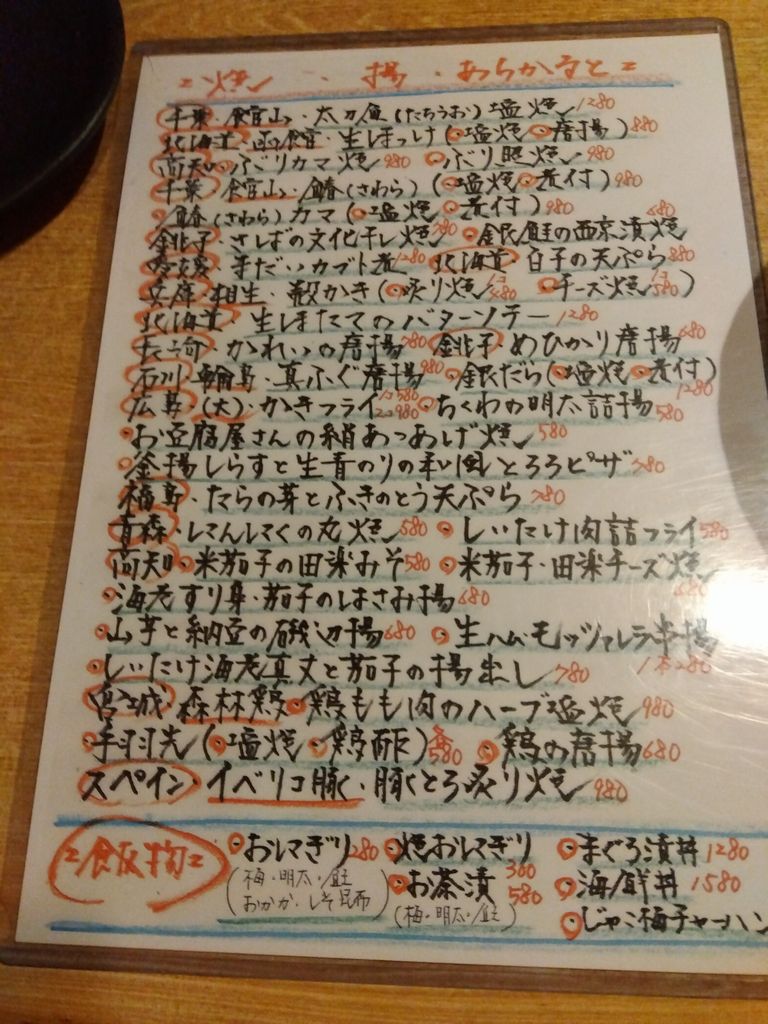 焼・揚・あらかると
千葉・館山・太刀魚(たちうお)塩焼1280
北海道・函館・生ほっけ(塩焼 唐揚)880
高知・ぶりカマ焼980 ぶり照焼980
千葉・館山・鰆(さわら)(塩焼・煮付)980
鰆(さわら)カマ(塩焼・煮付)980
銚子・さばの文化干し焼 銀鮭の西京漬焼680
まだいカブト煮1280 北海道・白子の天ぷら880
兵庫・相生・殻かき(炙り焼 チーズ焼)
北海道・生ほたてのバターソテー1280
かれいの唐揚780 銚子・めひかり唐揚680
石川・輪島・真ふぐ唐揚980 銀だら(塩焼・煮付)1280
広島・(大)かきフライ1コ580 2コ980 ちくわの明太詰揚580
お豆腐屋さんの絹あつあげ焼580
釜揚しらすと生青のりの和風とろろピザ780
福島・たらの芽とふきのとう天ぷら780
青森・にんにくの丸焼580 しいたけ肉詰フライ580
高知・米茄子の田楽みそ580 米茄子・田楽チーズ焼
海老すり身・茄子のはさみ揚680
山芋と納豆の磯辺揚680 生ハムモッツァレラ串揚
しいたけ海老真丈と茄子の揚出し780 1本280
宮城・森林鶏・鶏もも肉のハーブ塩焼980
手羽先(塩焼・鶏酢)580 鶏の唐揚680
スペイン・イベリコ豚・豚とろ炙り焼980
飯物 おにぎり280 焼おにぎり300 まぐろ漬丼1280
(梅・明太・鮭 おかか・しそ昆布) お茶漬580 海鮮丼1580
(梅・明太・鮭) じゃこ梅チャーハン